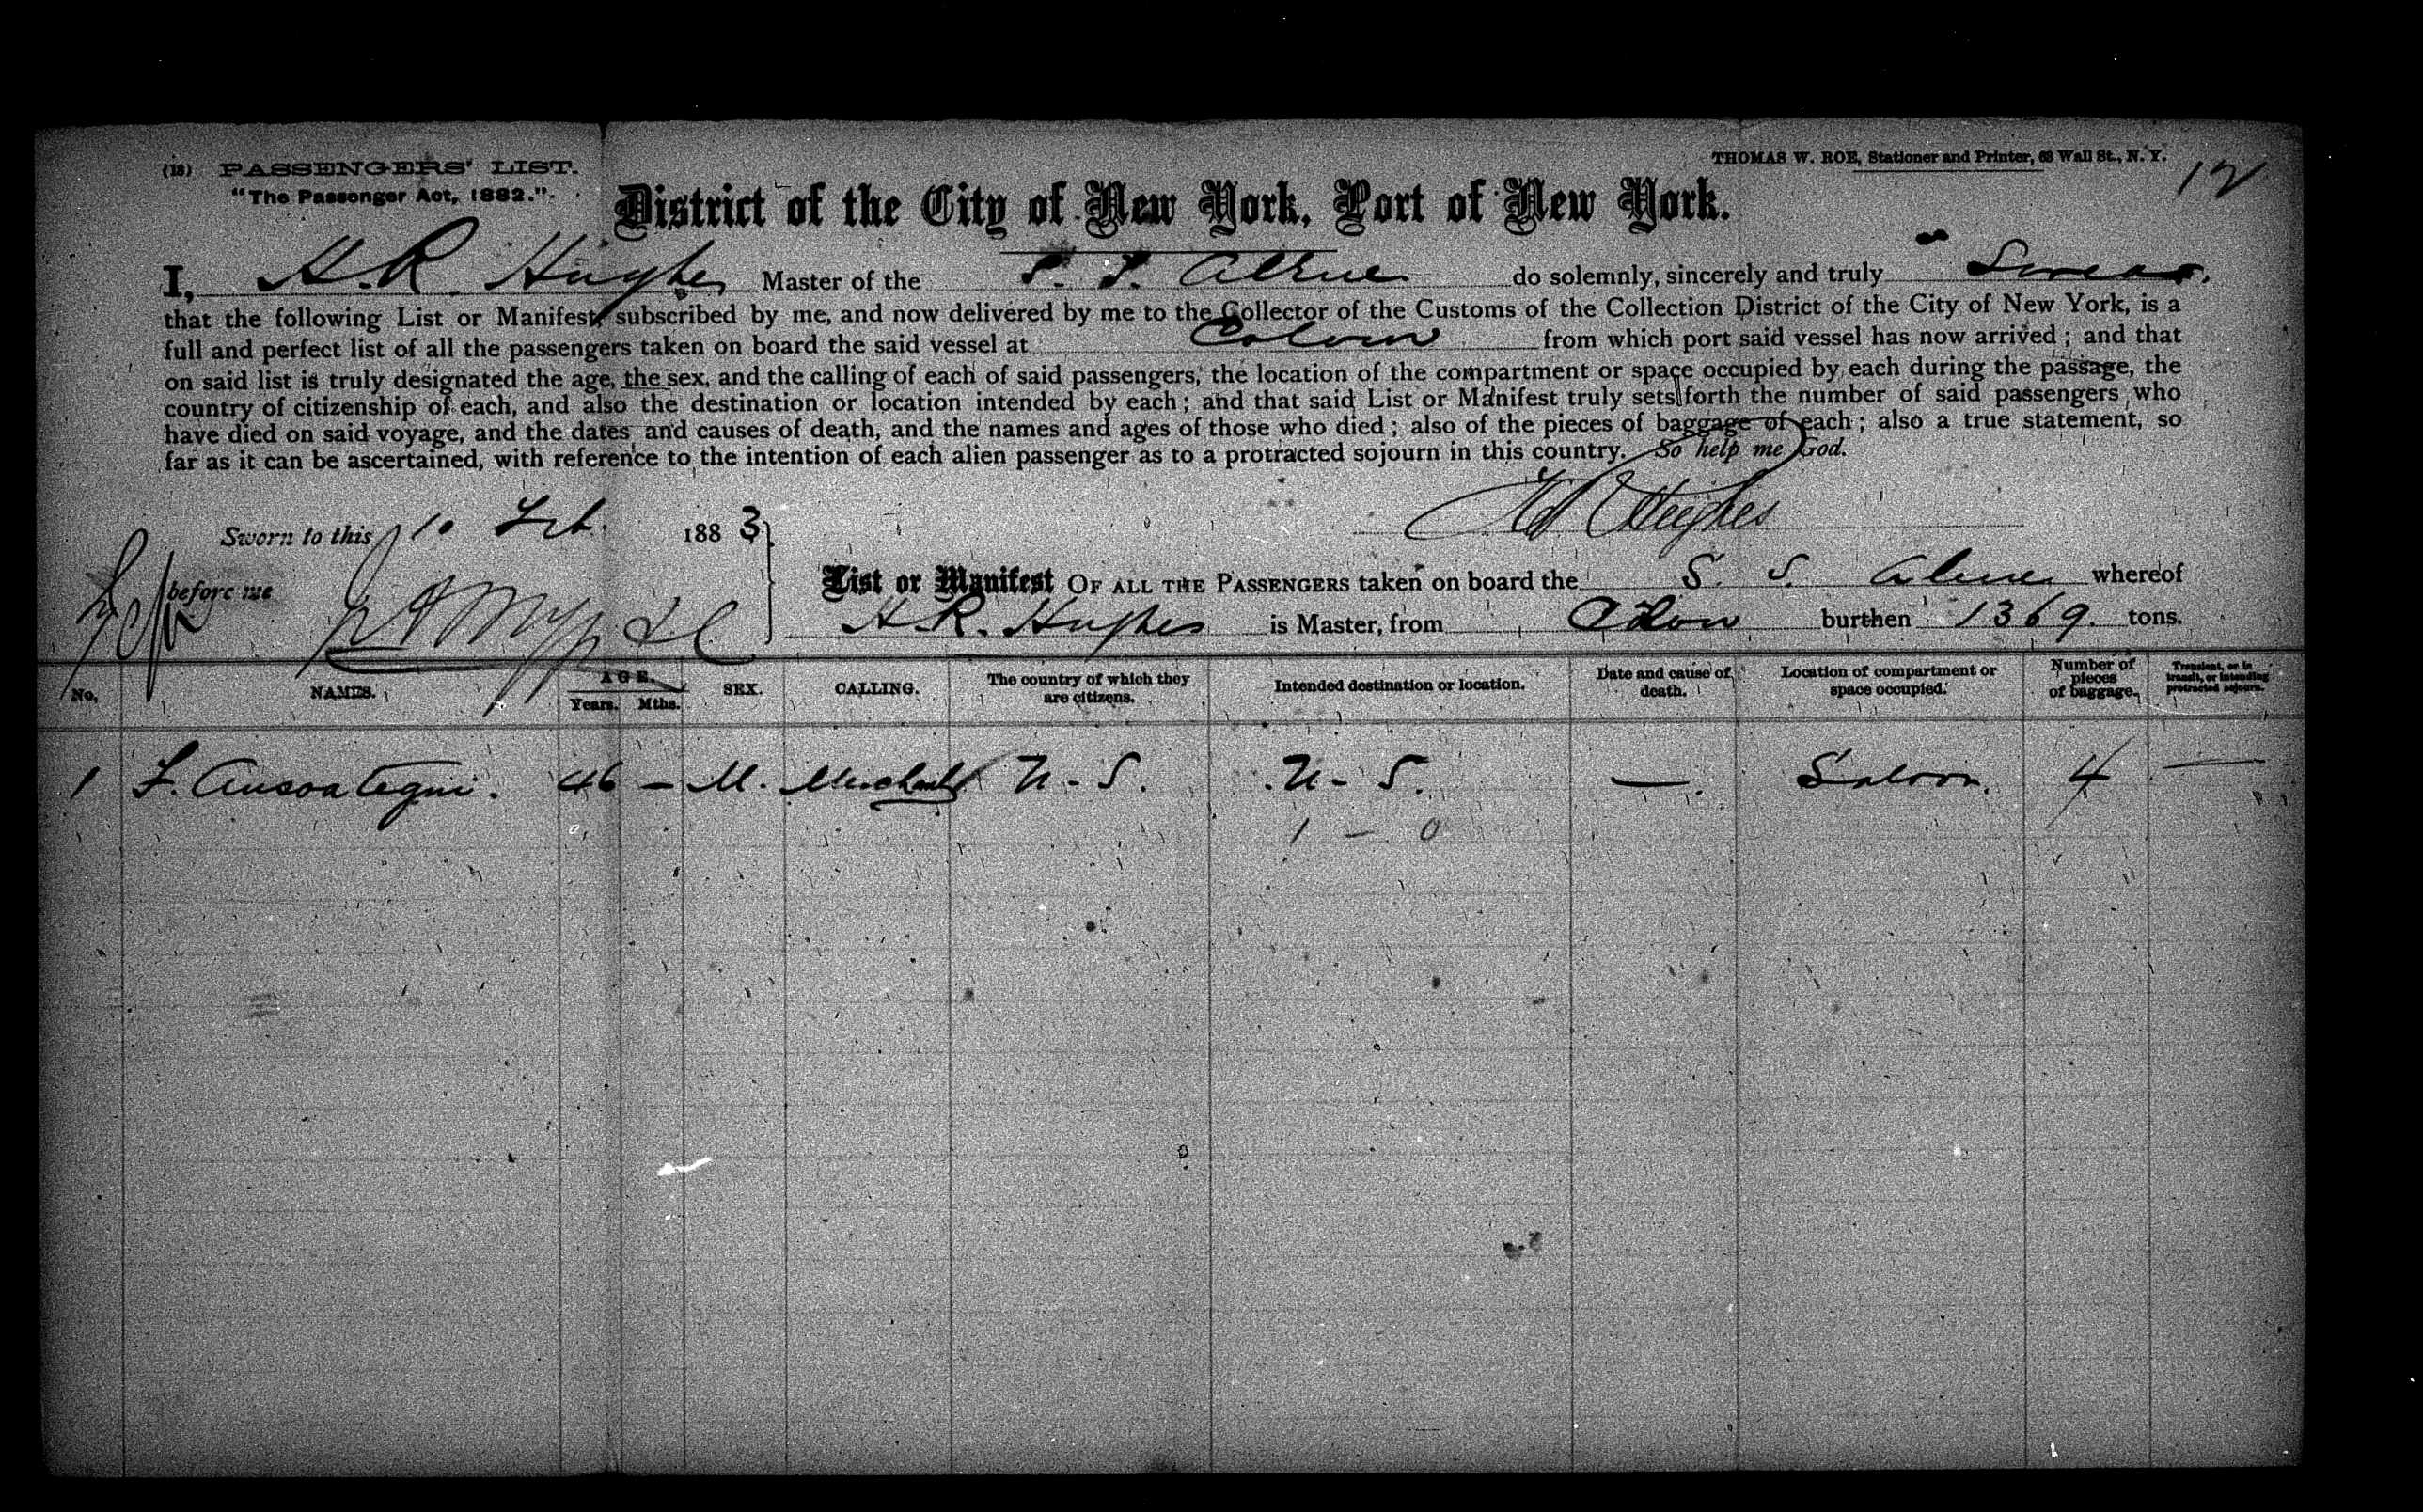 (18) PASSENGERS' LIST.
"The Passenger Act, 1882."
THOMAS W. ROE, Stationer and Printer, 68 Wall St., N. Y.
12
District of the City of New York, Port of New York.
I, H. R. Hughes Master of the S. S. do solemnly, sincerely and truly Swear,
that the following List or Manifest subscribed by me, and now delivered by me to the Collector of the Customs of the Collection District of the City of New York, is a
full and perfect list of all the passengers taken on board the said vessel at Colon from which port said vessel has now arrived; and that
on said list is truly designated the age, the sex, and the calling of each of said passengers, the location of the compartment or space occupied by each during the passage, the
country of citizenship of each, and also the destination or location intended by each; and that said List or Manifest truly sets forth the number of said passengers who
have died on said voyage, and the dates and causes of death, and the names and ages of those who died; also of the pieces of baggage of each; also a true statement, so
far as it can be ascertained, with reference to the intention of each alien passenger as to a protracted sojourn in this country. So help me God.
H R Hughes
Sworn to this 10 Feb. 1883
before me
List or Manifest OF ALL THE PASSENGERS taken on board the S. S. whereof
H. R. Hughes is Master, from Colon burthen 1369. tons.
No. NAMES. AGE. Years. Mths. SEX. CALLING. The country of which they are citizens. Intended destination or location. Date and cause of death. Location of compartment or space occupied. Number of pieces of baggage. Transient, or in transit, or intending protracted sojourn.
1 F. Ansoategui. 46 — M. Merchant U. S. U. S. — Saloon. 4 —
1 — 0